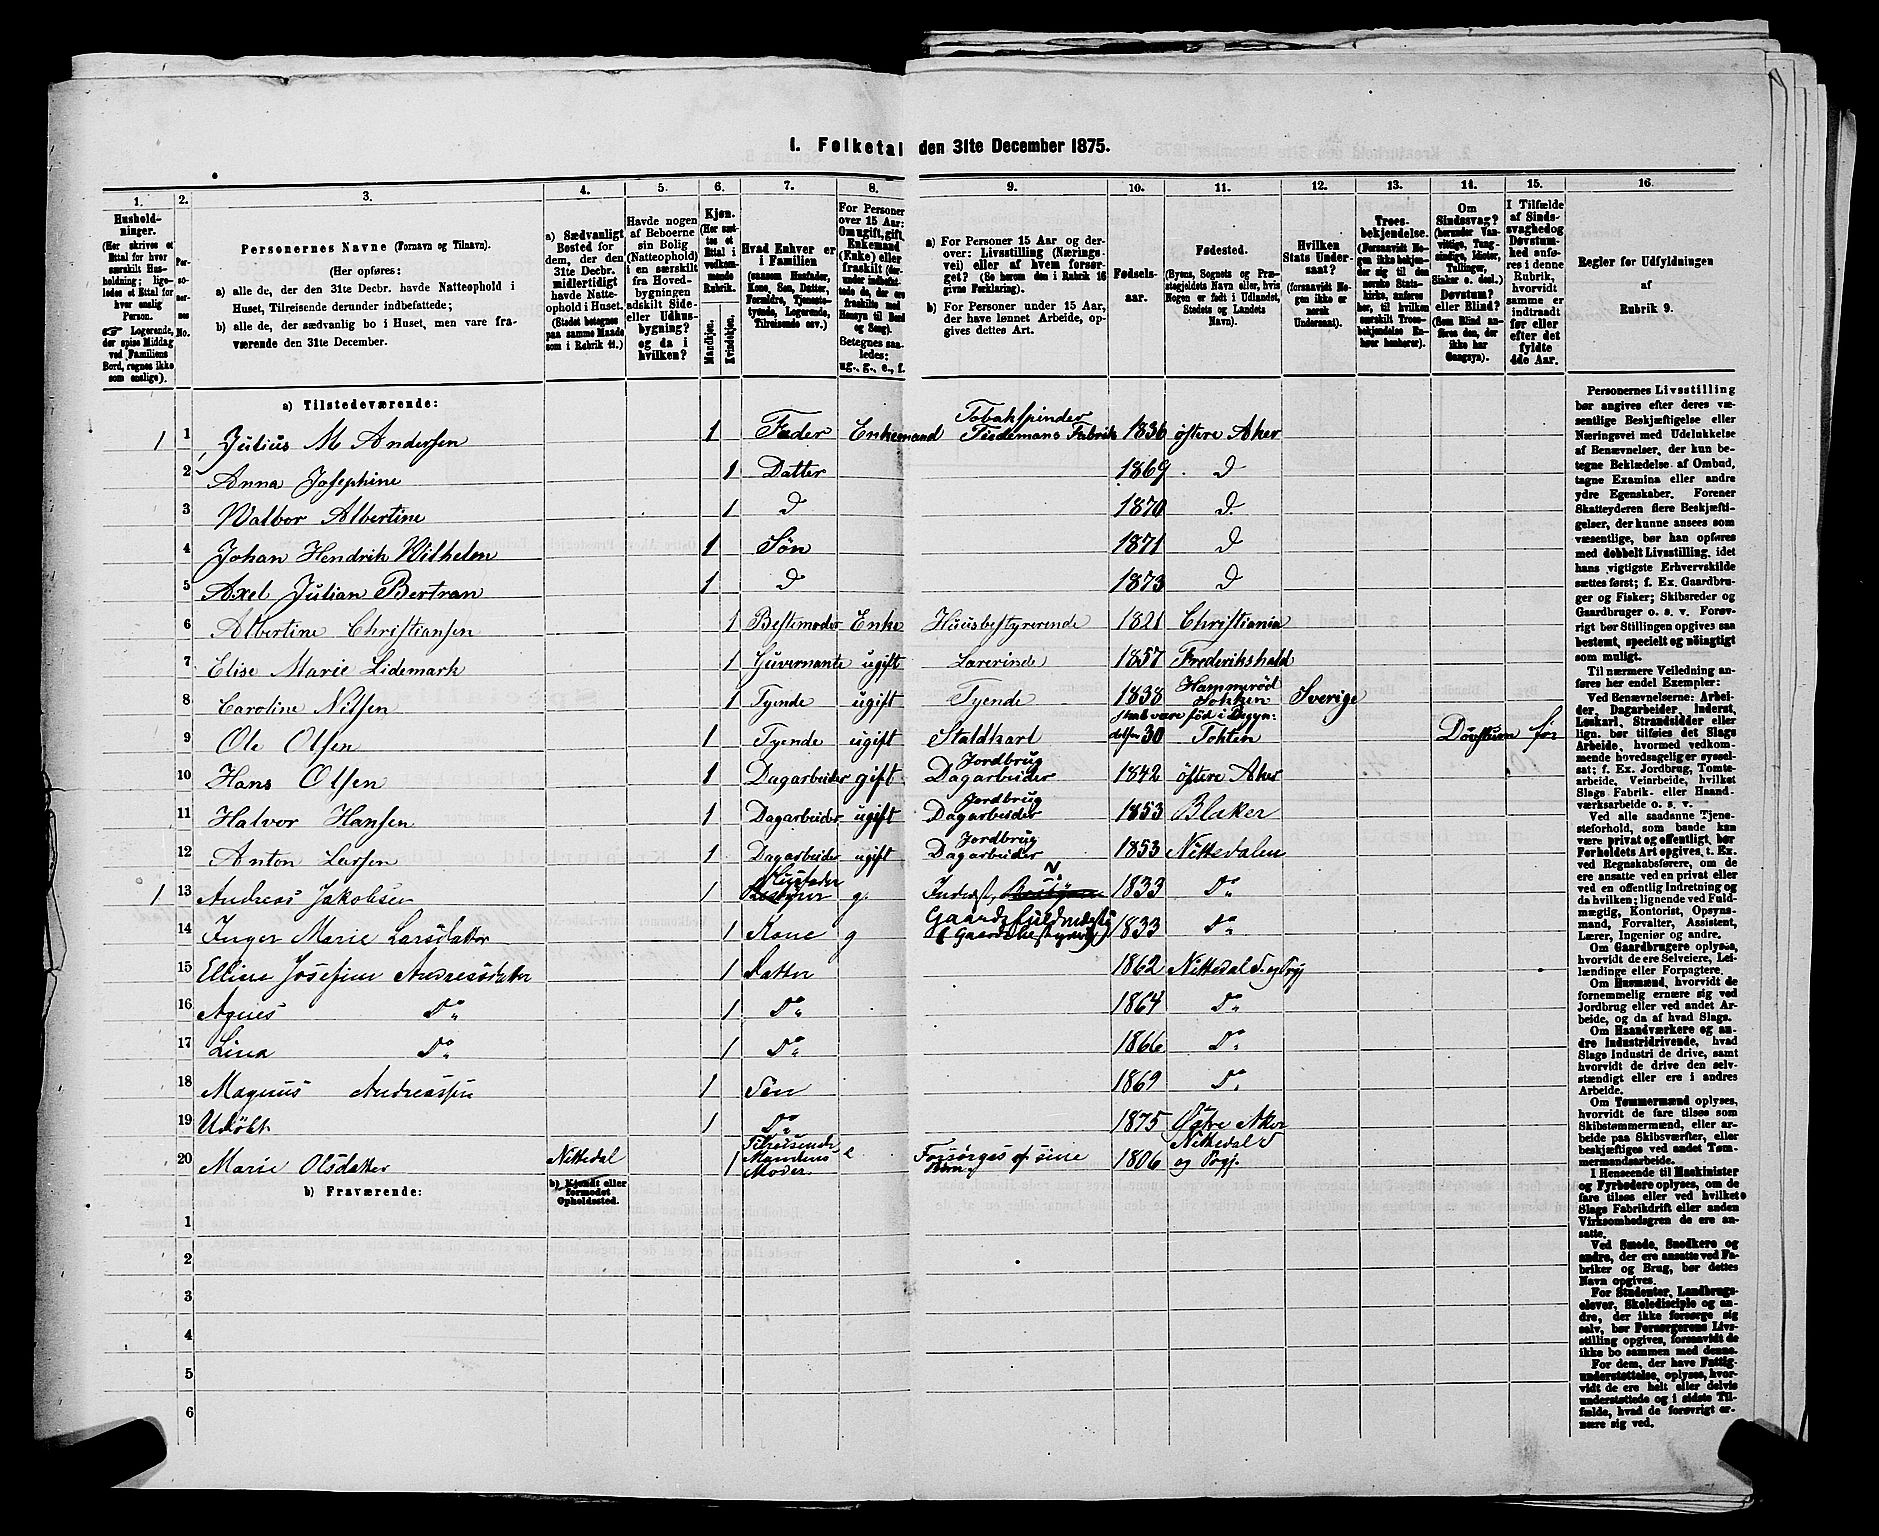 I. Folketal den 31te December 1875.
1. 2. 3. 4. 5. 6. 7. 8. 9. 10. 11. 12. 13. 14. 15. 16.
Husholdninger. (Her skrives et Ettal for hver særskilt Husholdning; ligeledes et Ettal for hver enslig Person. Logerende, der spise Middag ved Familiens Bord, regnes ikke som enslige).
Personernes No.
Personernes Navne (Fornavn og Tilnavn).
(Her opføres:
a) alle de, der den 31te Decbr. havde Natteophold i Huset, Tilreisende derunder indbefattede;
b) alle de, der sædvanlig bo i Huset, men vare fraværende den 31te December.
a) Sædvanligt Bosted for dem, der den 31te Decbr. midlertidigt havde Natteophold i Huset. (Stedet betegnes paa samme Maade som i Rubrik 11.)
Havde nogen af Beboerne sin Bolig (Natteophold) i en særskilt fra Hovedbygningen adskilt Side- eller Udhusbygning? og da i hvilken?
Kjøn. (Her sættes et Ettal i vedkommende Rubrik.
Mandkjøn. Kvindekjøn.
Hvad Enhver er i Familien (saasom Husfader, Kone, Søn, Datter, Forældre, Tjenestetyende, Logerende, Tilreisende osv.)
For Personer over 15 Aar: Om ugift, gift, Enkemand (Enke) eller fraskilt
Betegnes saaledes: ug., g., e., f.
a) For Personer 15 Aar og derover: Livsstilling (Næringsvei) eller af hvem forsørget? (Se herom den i Rubrik 16 givne Forklaring).
b) For Personer under 15 Aar, der have lønnet Arbeide, opgives dettes Art.
Fødselsaar.
Fødested. (Byens, Sognets og Præstegjeldets Navn eller, hvis Nogen er født i Udlandet, Stedets og Landets Navn).
Hvilken Stats Undersaat? (forsaavidt Nogen ikke er norsk Undersaat).
Troesbekjendelse. (Forsaavidt Nogen ikke bekjender sig til den norske Statskirke, anføres her, til hvilken særskilt Troesbekjendelse Enhver henhører).
Om Sindssvag? (herunder Vanvittige, Tungsindige, Idioter, Tullinger, Sinker o. desl.) Døvstum? eller Blind? (Som Blind anføres den, der ikke har Gangsyn).
I Tilfælde af Sindssvaghed og Døvstumhed anføres i denne Rubrik, hvorvidt samme er indtraadt før eller efter det fyldte 4de Aar.
Regler før Udfyldningen af Rubrik 9.
a) Tilstedeværende:
1 1 Julius M Andersen 1 Fader Enkemand Tobakspinder Tiedemans Fabrik 1836 østre Aker
2 Anna Josephine 1 Datter 1869 D
3 Walbor Albertine 1 D 1870 D
4 Johan Hendrik Wilhelm 1 Søn 1871 D
5 Axel Julian Bertran 1 D 1873 D
6 Albertine Christiansen 1 Bestemoder Enke Huusbestyrerende 1821 Christiania
7 Elise Marie Lidemark 1 Guvernante ugift Lærerinde 1857 Frederikshald
8 Caroline Nilsen 1 Tyende ugift Tyende 1838 Hammerød Sverige
9 Ole Olsen 1 Tyende ugift Staldkarl skal være fød i Begyndelsen 30 Tohten Døvstum før
10 Hans Olsen 1 Dagarbeider gift Jordbrug Dagarbeider 1842 østre Aker
11 Halvor Hansen 1 Dagarbeider ugift Jordbrug Dagarbeider 1853 Blaker
12 Anton Larsen 1 Dagarbeider ugift Jordbrug Dagarbeider 1853 Nittedalen
1 13 Andreas Jakobsen 1 Husfader g. Inderst, 1833 Do
14 Inger Marie Larsdatter 1 Kone g (Gaardsbestyrer) 1833 Do
15 Elline Josefine Andreasdatter 1 Datter 1862 Nittedal S. og Prgj
16 Agnes Do 1 Do 1864 Do
17 Lina Do 1 Do 1866 Do
18 Magnus Andreassen 1 Søn 1869 Do
19 Udøbt 1 Do 1875 Østre Aker
20 Marie Olsdatter Nittedal 1 Tilreisende Mandens Moder e Forsørges af sine Børn 1806 Nittedal S og Prgj.
b) Fraværende:
b) Kjendt eller formodet Opholdssted.
1
2
3
4
5
6
Personernes Livsstilling
bør angives efter deres væ-
sentlige Beskjæftigelse eller
Næringsvei med Udelukkelse
af Benævnelser, der kun be-
tegne Beklædelse af Ombud,
tagne Examina eller andre
ydre Egenskaber. Forener
Skatteyderen flere Beskjæfti-
gelser, der kunne ansees som
væsentlige, bør han opføres
med dobbelt Livsstilling, idet
hans vigtigste Erhvervskilde
sættes først; f. Ex. Gaardbru-
ger og Fisker; Skibsreder og
Gaardbruger o. s. v. Forøv-
rigt bør Stillingen opgives saa
bestemt, specielt og nøiagtigt
som muligt.
Til nærmere Veiledning an-
føres her endel Exempler:
Ved Benævnelserne: Arbei-
der, Dagarbeider, Inderst,
Løskarl, Strandsidder eller
lign. bør tilføies det Slags
Arbeide, hvormed vedkom-
mende hovedsagelig er syssel-
sat; f. Ex. Jordbrug, Tomte-
arbeide, Veiarbeide, hvilket
Slags Fabrik- eller Haand-
værksarbeide o. s. v.
Ved alle saadanne Tjene-
steforhold, som baade kan
være privat og offentligt, bør
Forholdets Art opgives, t. Ex.
ved Regnskabsførere, om de
ere ansatte ved en privat eller
ved en offentlig Indretning og
da hvilken; lignende ved Fuld-
mægtig, Kontorist, Opsyns-
mand, Forvalter, Assistent,
Lærer, Ingeniør og andre.
Om Gaardbrugere oplyses,
hvorvidt de ere Selveiere, Lei-
lændinge eller Forpagtere.
Om Husmænd, hvorvidt de
fornemmelig ernære sig ved
Jordbrug eller ved andet Ar-
beide, og da af hvad Slags.
Om Haandværkere og an-
dre Industridrivende, hvad
Slags Industri de drive, samt
hvorvidt de drive den selv-
stændigt eller ere i andres
Arbeide.
Om Tømmermænd oplyses,
hvorvidt de fare tilsøs som
Skibstømmermænd, eller ar-
beide paa Skibsværfter, eller
beskjæftiges ved andet Tøm-
mermandsarbeide.
I Henseende til Maskinister
og Fyrbødere oplyses, om de
fare tilsøs eller ved hvilket
Slags Fabrikdrift eller anden
Virksomhedsgren de ere an-
satte.
Ved Smede, Snedkere og
andre, der ere ansatte ved Fa-
briker og Brug, bør dettes
Navn opgives.
For Studenter, Landbrugs-
elever, Skoledisciple og an-
dre, der ikke forsørge sig
selv, bør Forsørgerens Livs-
stilling opgives, forsaavidt de
ikke bo sammen med denne.
For dem, der have Fattig-
understøttelse, oplyses, hvor-
vidt de ere helt eller delvis
understøttede og i sidste Til-
fælde, hvad de forøvrigt er-
nære sig ved.